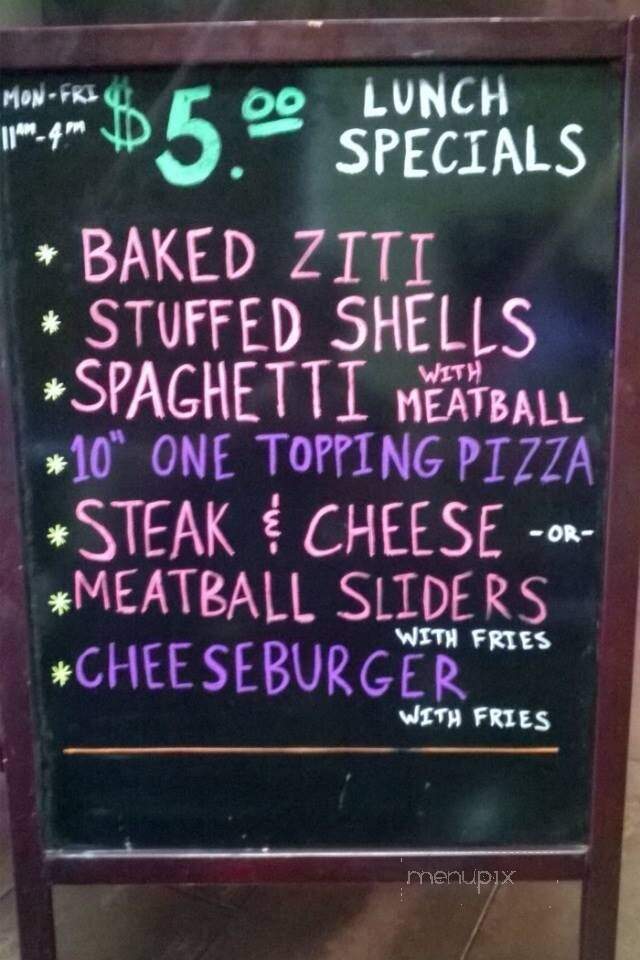 MON-FRI $5.00 LUNCH
11AM-4PM SPECIALS
* BAKED ZITI
* STUFFED SHELLS
* SPAGHETTI WITH MEATBALL
* 10" ONE TOPPING PIZZA
* STEAK & CHEESE -OR-
* MEATBALL SLIDERS
WITH FRIES
* CHEESEBURGER
WITH FRIES
menupix